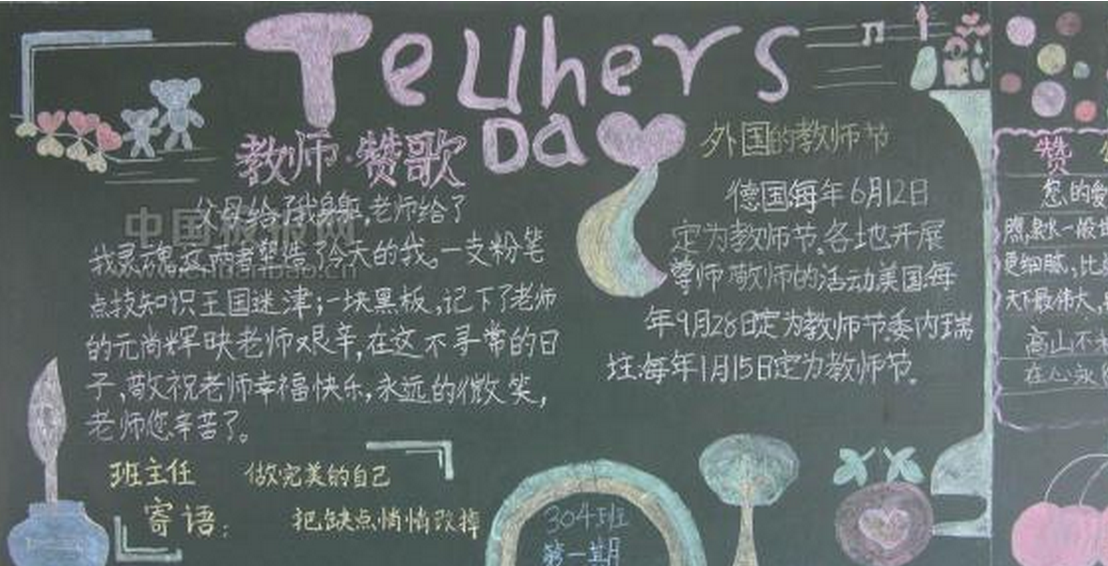 Teuhers
Da
教师·赞歌
父母给了我身躯,老师给了
我灵魂,这两者塑造了今天的我。一支粉笔
点技知识王国迷津;一块黑板,记下了老师
的元尚辉映老师艰辛,在这不寻常的日
子,敬祝老师幸福快乐,永远的微笑,
老师您辛苦了。
班主任
寄语:
做完美的自己
把缺点悄悄改掉
外国的教师节
德国每年6月12日
定为教师节,各地开展
尊师敬师的活动美国每
年9月28日定为教师节委内瑞
拉:每年1月15日定为教师节。
304班
第一期
赞
您的爱
更细腻,比
天下最伟大,
高山不
在心永